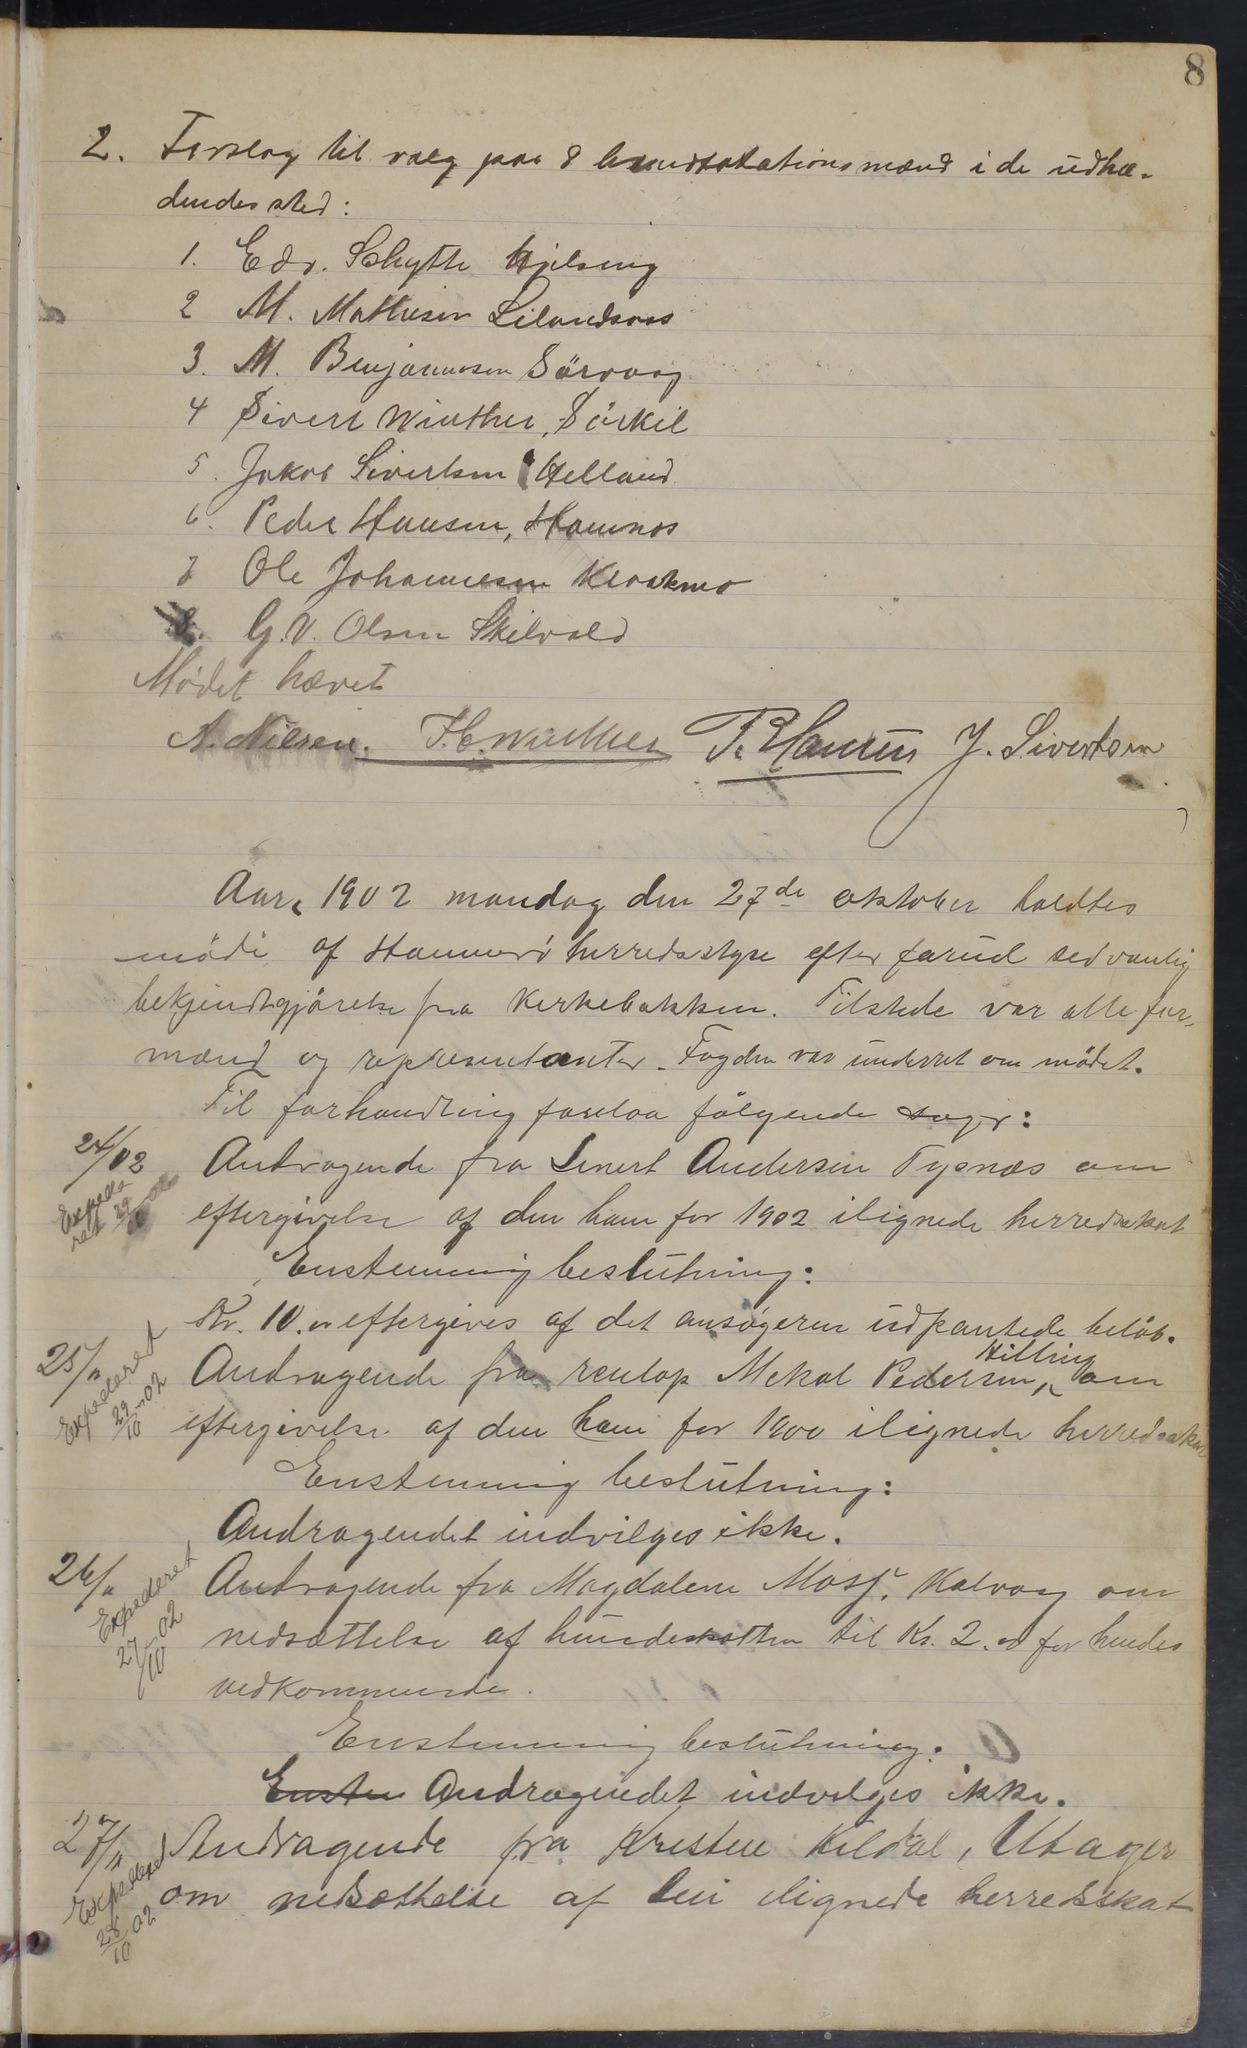 8
2. Forslag til valg paa 8 mænd i de udtræ-
dendes sted:
1. Edv. Schytte Hjelseng
2 M. Mathisen Leilandsaas
3. M. Benjaminsen Sörvaag
4 Sivert Winther, Sörkil
5. Jakob Sivertsen Helland
6. Peder Hansen, Hamnes
7 Ole Johannesen Kloakmo
8. G. V. Olsen Skilvold
Mødet hævet
A. Nilsen. F. C. Winther P. Hansen J. Sivertsen
Aar 1902 mandag den 27de oktober holdtes
möde af Hammerö herredsstyre efter forud sedvanlig
bekjendtgjörelse fra Kirkebakken. Tilstede var alle for-
mænd og representanter. Fogden var underret om mödet.
Til forhandling forelaa fölgende sager:
24/02 Andragende fra Lenert Andersen Tysnæs om
Expede-
ret 29/10 02
eftergivelse af den ham for 1902 ilignede herredsskat
Enstemmig beslutning:
Kr. 10.00 eftergives af det ansögeren udpantede belöb.
25/02 Andragende fra renlap Mikal Pedersen, Hilling om
Expederet
29/10-02
eftergivelse af den ham for 1900 ilignede herredsskat
Enstemmig beslutning:
Andragendet indvilges ikke.
26/02 Andragende fra Magdalene Mosj. Kalvaag om
Expederet
27/10-02
nedsættelse af hundeskatten til Kr. 2.00 for hendes
vedkommende.
Enstemmig beslutning:
Enstem Andragendet indvilges ikke.
27/02 Andragende fra Kristine Kildal, Utager
Expederet
28/10 02
om nedsættelse af sin ilignede herredsskat